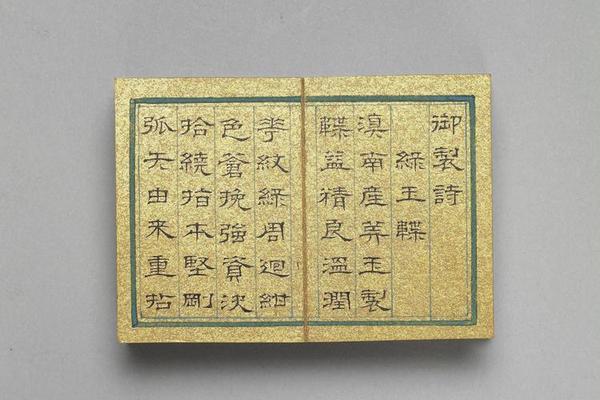 御製詩
綠玉韘
滇南産美玉製
韘益精良溫潤
華紋綠周迴紺
色蒼挽強資決
拾繞指本堅剛
弧矢由來重